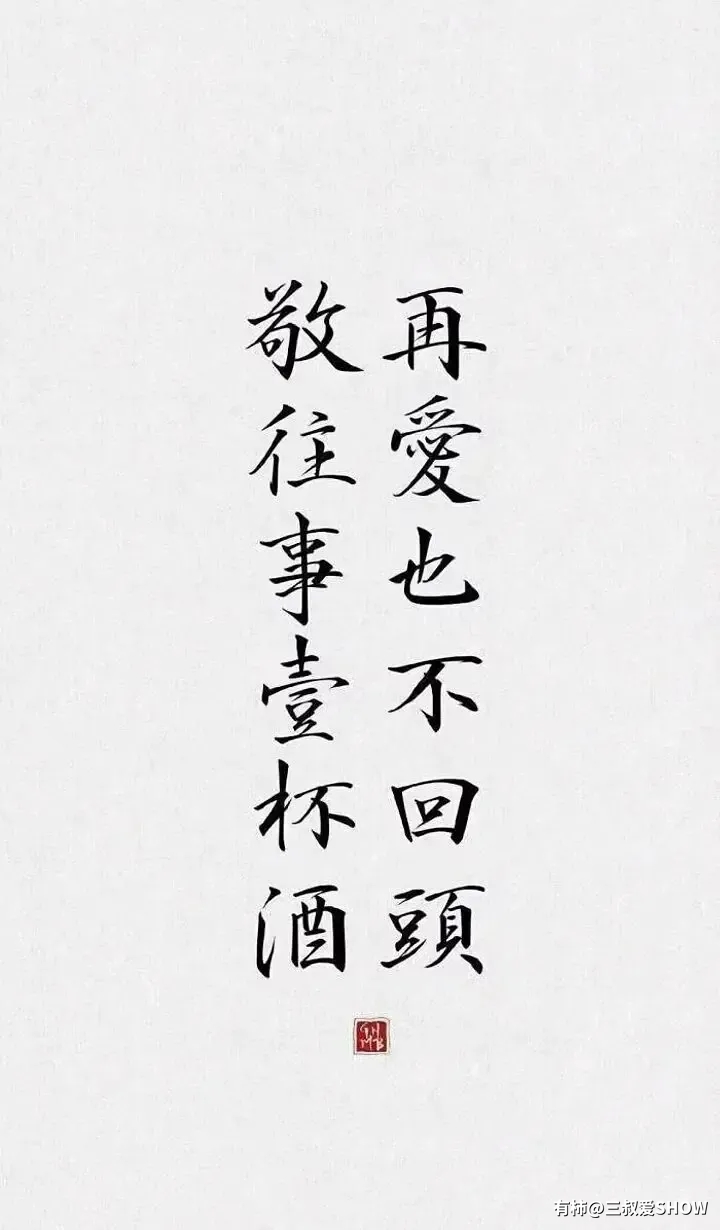 敬往事壹杯酒
再愛也不回頭
有柿@三叔爱SHOW